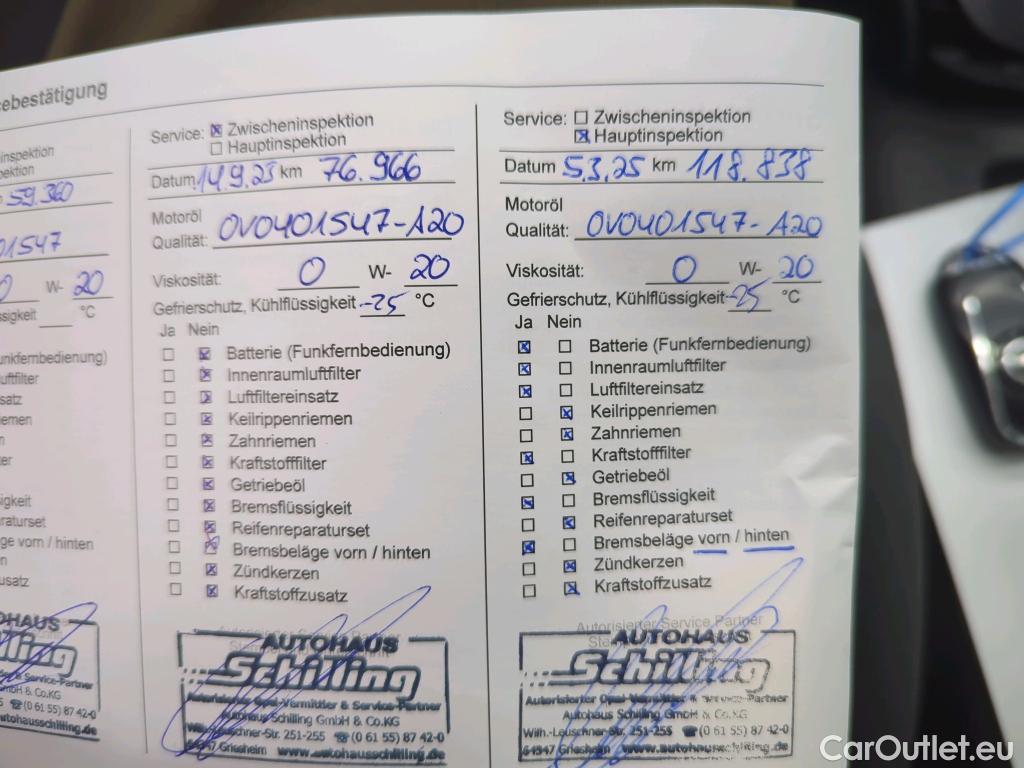 cebestätigung
inspektion
pektion
59.360
01547
0 W- 20
sigkeit °C
unkfernbedienung)
uftfilter
satz
iemen
n
ter
sigkeit
araturset
äge vorn / hinten
en
zusatz
OHAUS
ling
er & Service-Partner
mbH & Co.KG
5 ☎ (0 61 55) 87 42-0
utohausschilling.de
Service: ☒ Zwischeninspektion
☐ Hauptinspektion
Datum 14.9.23 km 76.966
Motoröl
Qualität: OV0401547-A20
Viskosität: 0 W- 20
Gefrierschutz, Kühlflüssigkeit -25 °C
Ja Nein
☐ ☒ Batterie (Funkfernbedienung)
☐ ☒ Innenraumluftfilter
☐ ☒ Luftfiltereinsatz
☐ ☒ Keilrippenriemen
☐ ☒ Zahnriemen
☐ ☒ Kraftstofffilter
☐ ☒ Getriebeöl
☐ ☒ Bremsflüssigkeit
☐ ☒ Reifenreparaturset
☐ ☒ Bremsbeläge vorn / hinten
☐ ☒ Zündkerzen
☐ ☒ Kraftstoffzusatz
AUTOHAUS
Schilling
Autorisierter Opel-Vermittler & Service-Partner
Autohaus Schilling GmbH & Co.KG
Wilh.-Leuschner-Str. 251-255 ☎ (0 61 55) 87 42-0
64347 Griesheim www.autohausschilling.de
Service: ☐ Zwischeninspektion
☒ Hauptinspektion
Datum 5.3.25 km 118.838
Motoröl
Qualität: OV0401547-A20
Viskosität: 0 W- 20
Gefrierschutz, Kühlflüssigkeit -25 °C
Ja Nein
☒ ☐ Batterie (Funkfernbedienung)
☒ ☐ Innenraumluftfilter
☒ ☐ Luftfiltereinsatz
☐ ☒ Keilrippenriemen
☐ ☒ Zahnriemen
☒ ☐ Kraftstofffilter
☐ ☒ Getriebeöl
☒ ☐ Bremsflüssigkeit
☐ ☒ Reifenreparaturset
☒ ☐ Bremsbeläge vorn / hinten
☐ ☒ Zündkerzen
☐ ☒ Kraftstoffzusatz
Autorisierter Service Partner
AUTOHAUS
Schilling
Autorisierter Opel-Vermittler & Service-Partner
Autohaus Schilling GmbH & Co.KG
Wilh.-Leuschner-Str. 251-255 ☎ (0 61 55) 87 42-0
64347 Griesheim www.autohausschilling.de
CarOutlet.eu